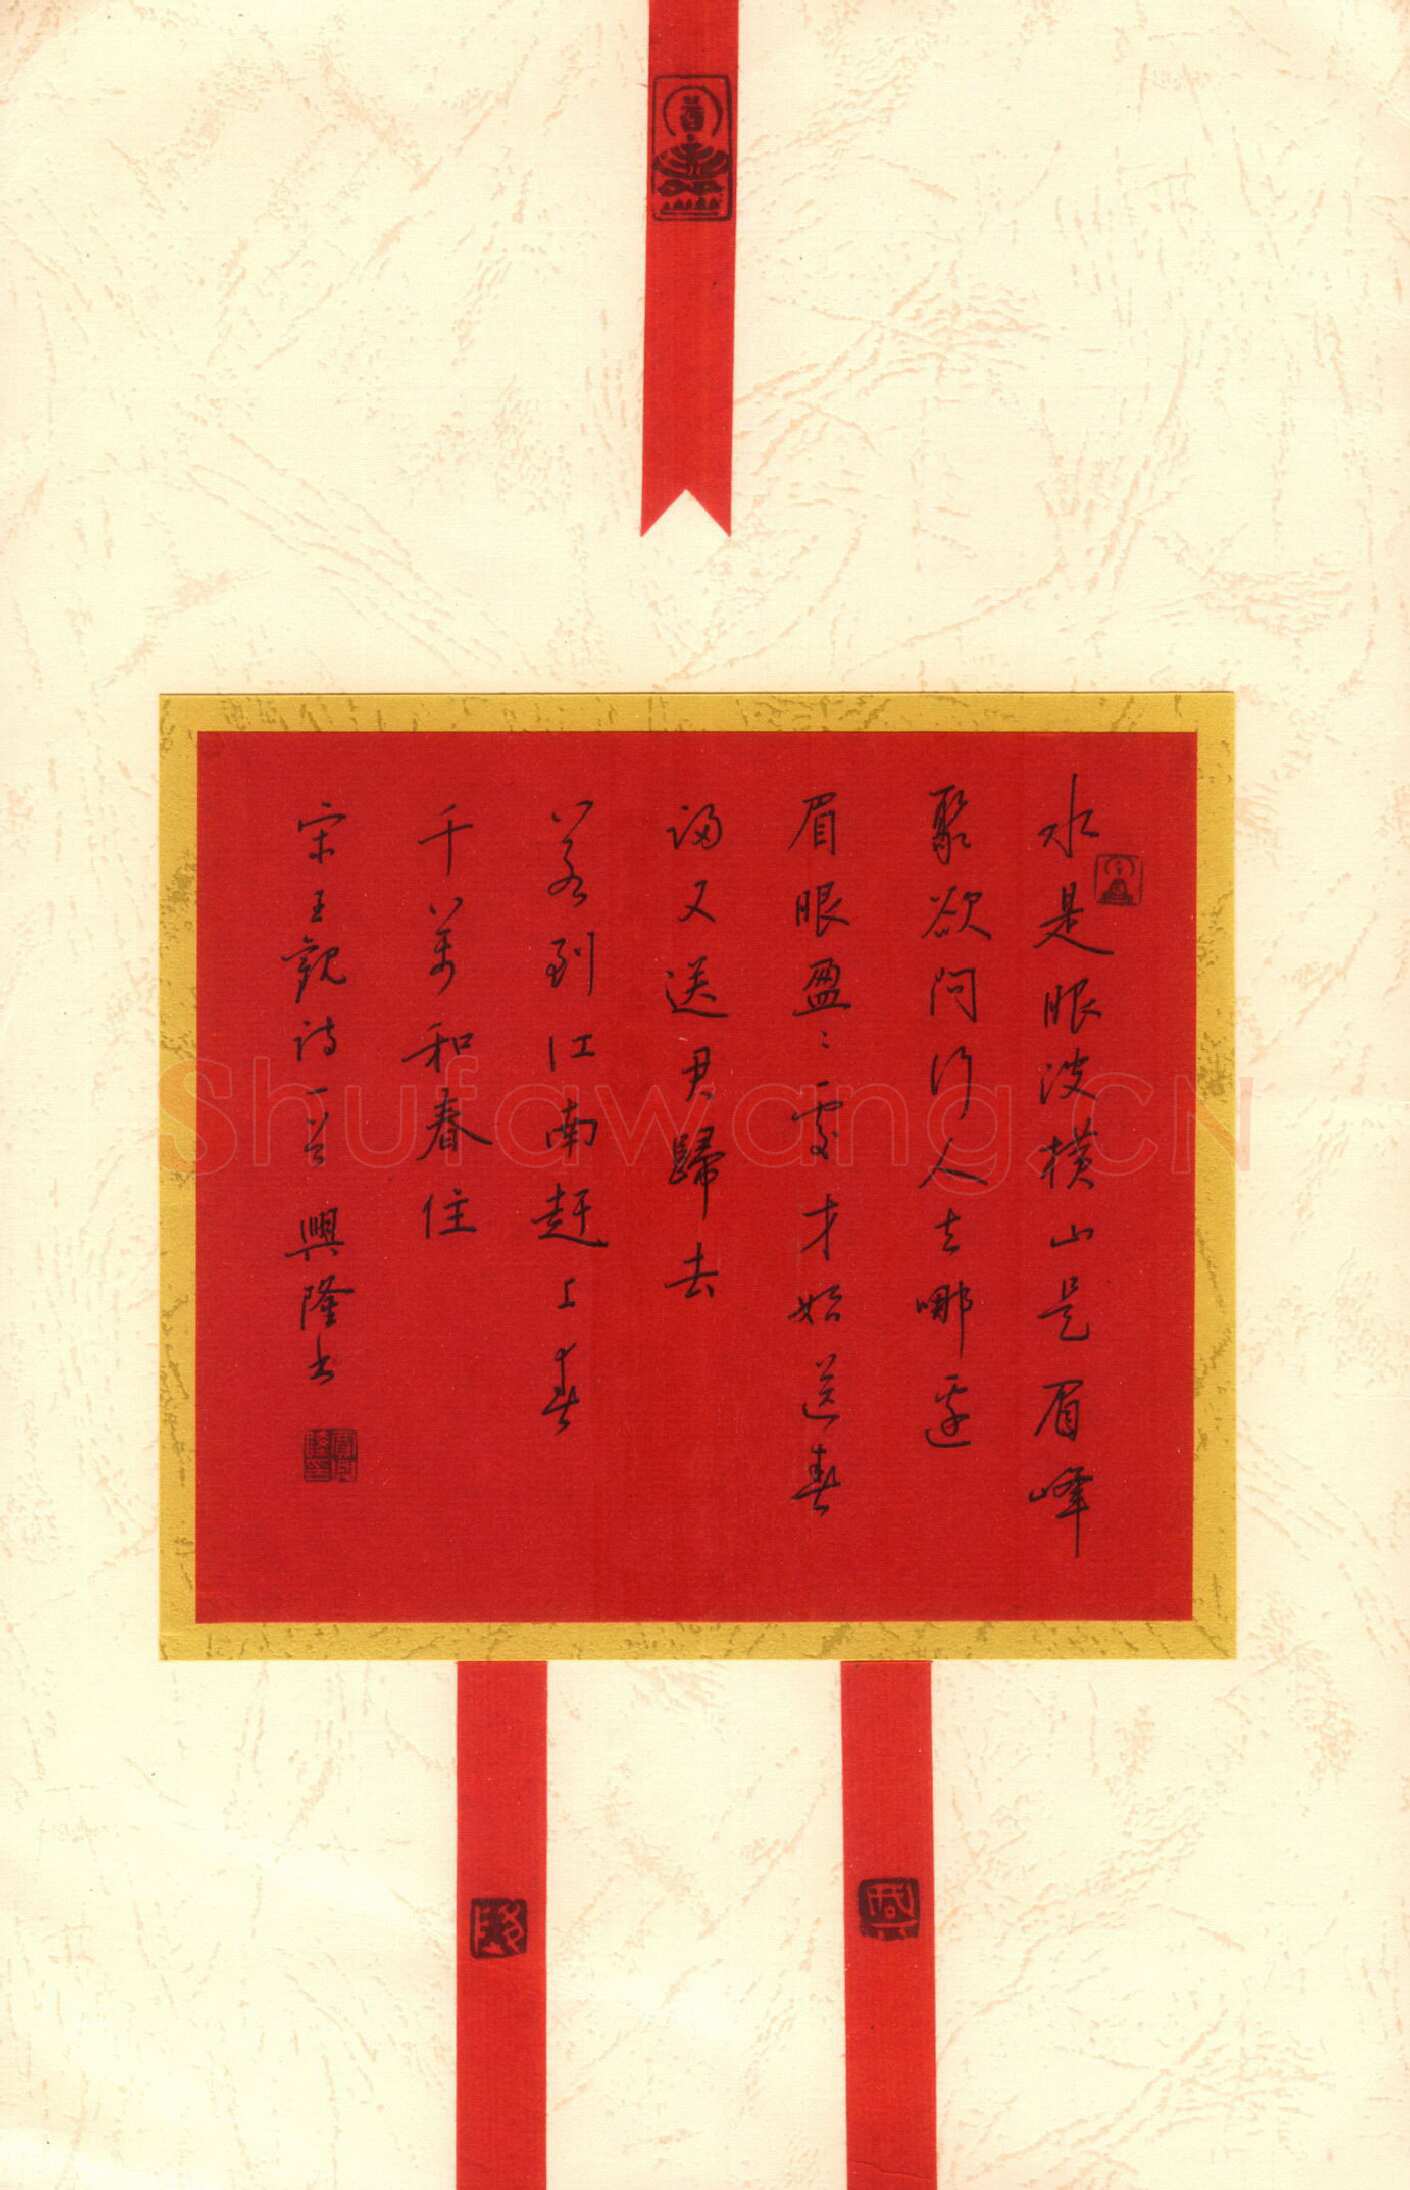 水是眼波横山是眉峰
聚欲问行人去哪邊
眉眼盈盈處才始送春
歸又送君歸去
若到江南赶上春
千萬和春住
宋王觀诗一首 興隆书
Shufawang.CN